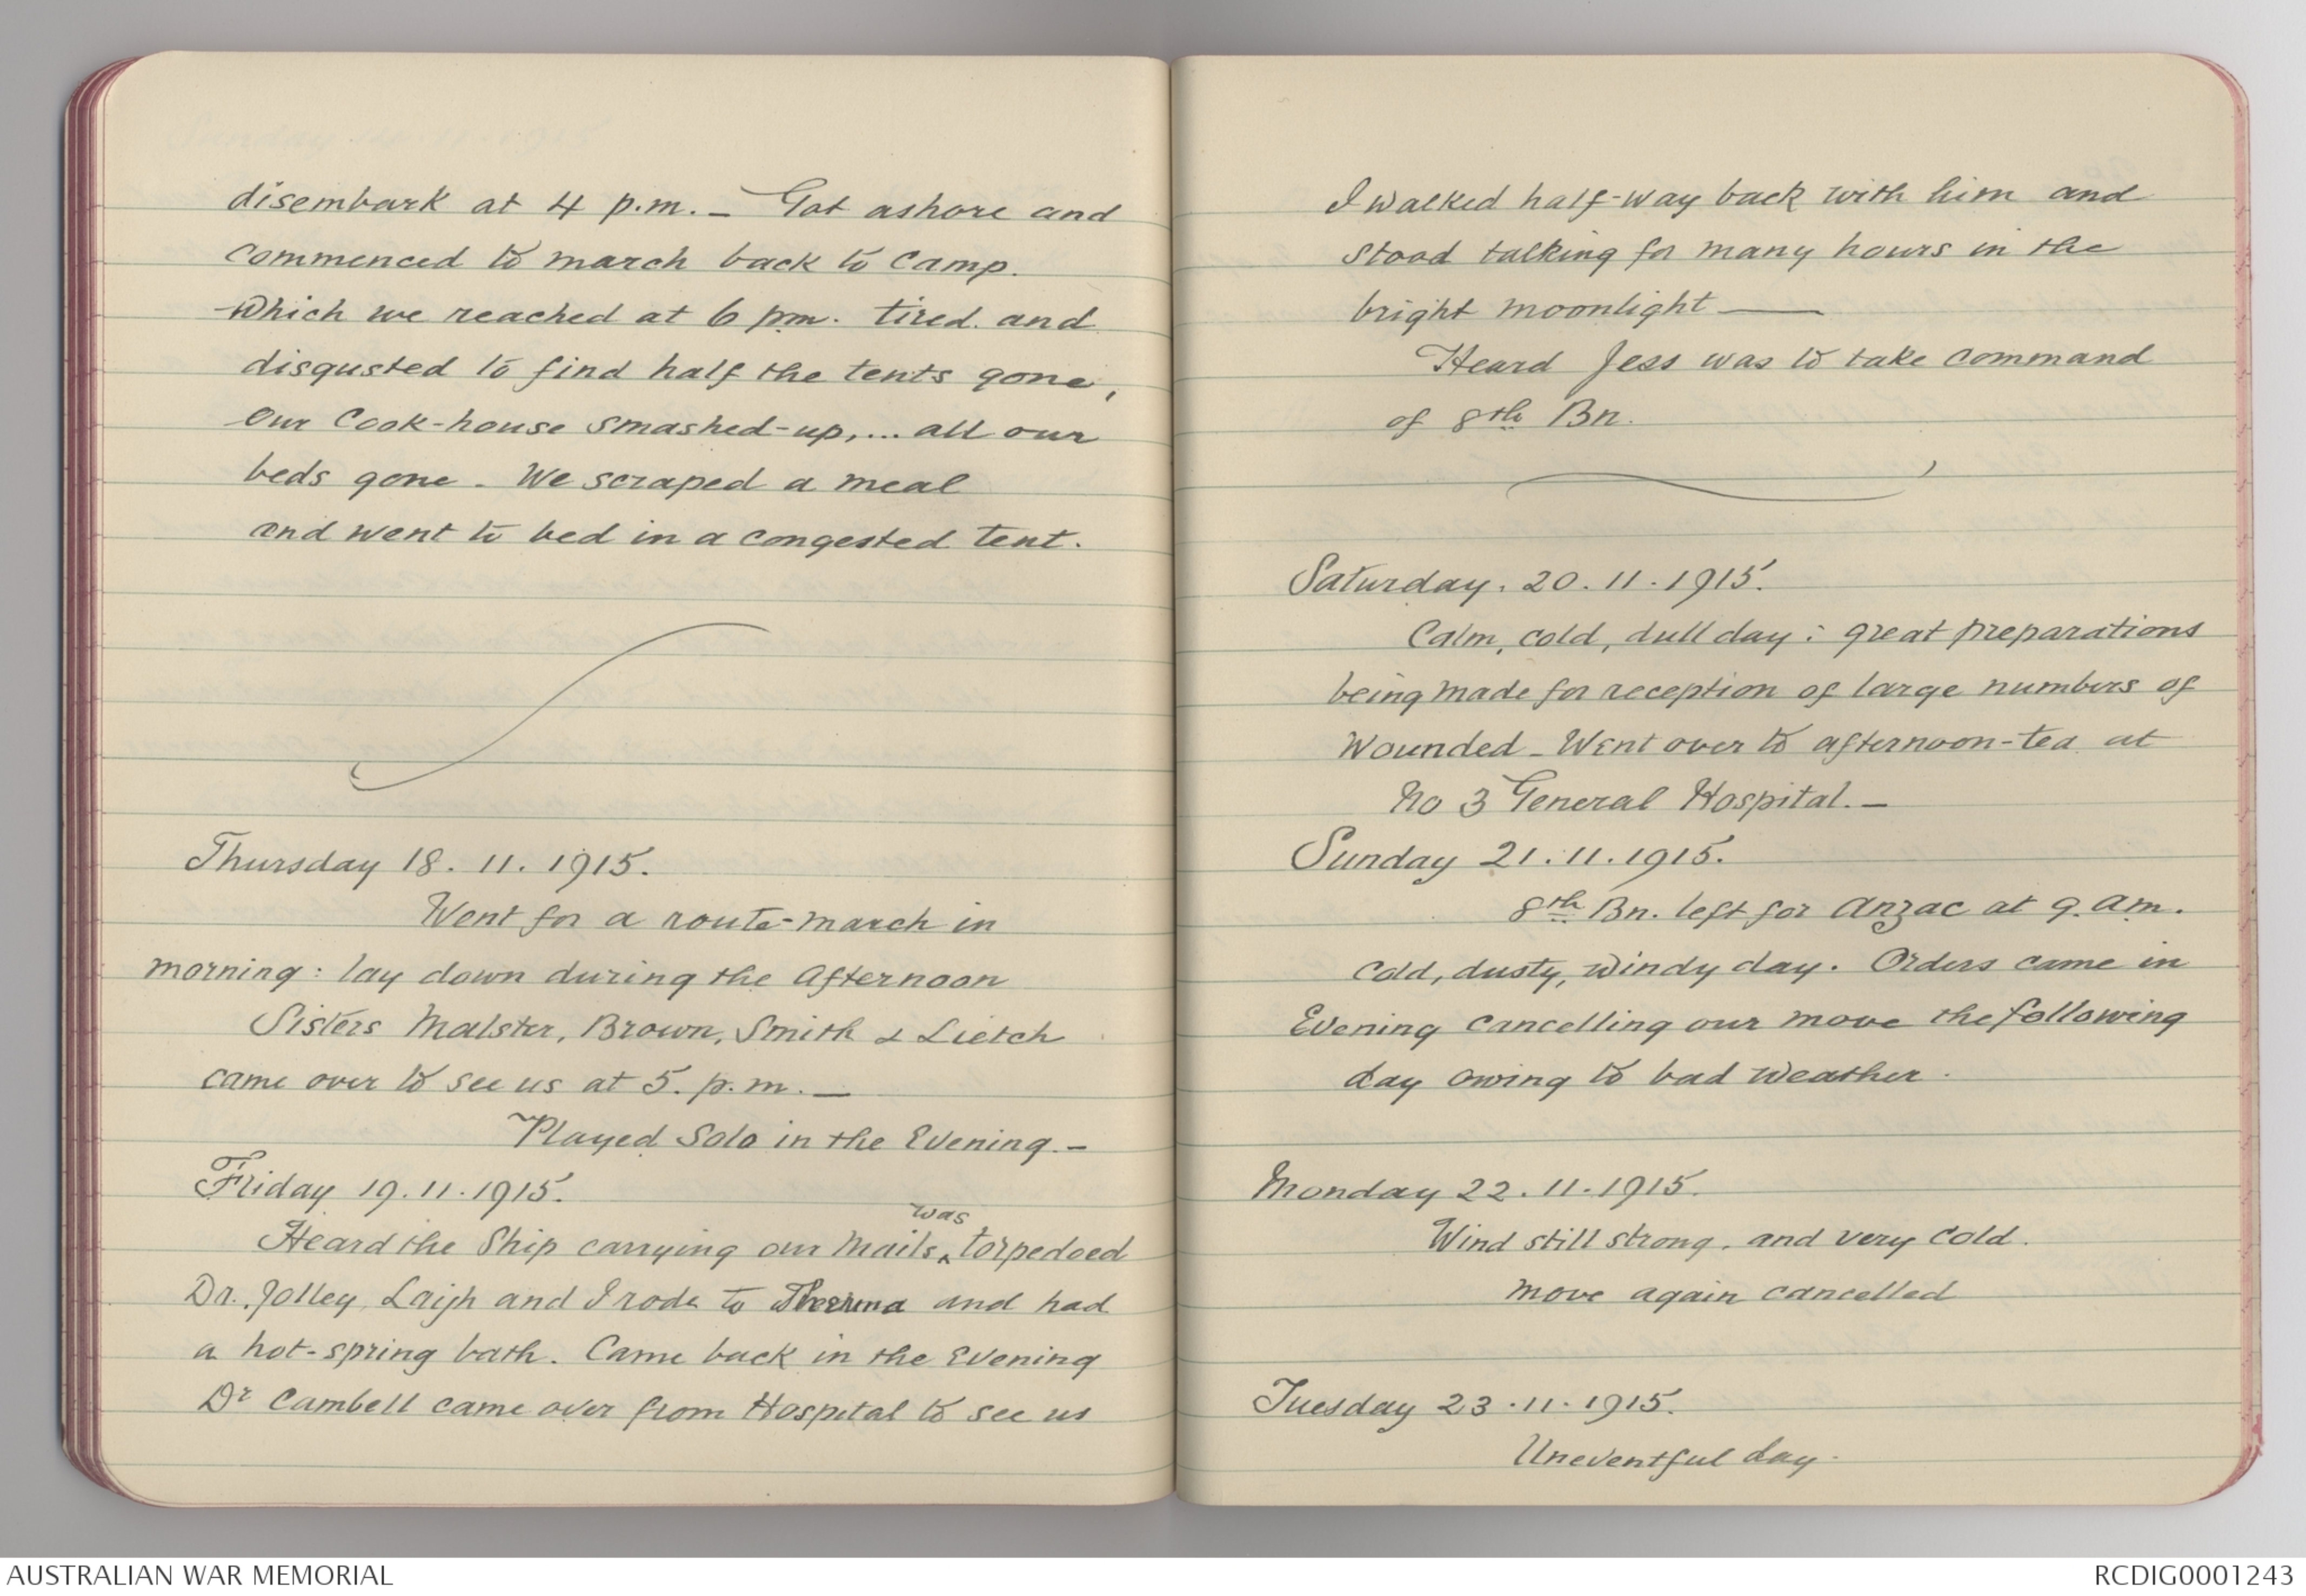 disembark at 4 p.m. – Got ashore and
commenced to march back to camp.
which we reached at 6 pm. tired. and
disgusted to find half the tents gone,
our Cook-house smashed-up,... all our
beds gone. We scraped a meal
and went to bed in a congested tent.
Thursday 18. 11. 1915.
Went for a route-march in
morning: lay down during the Afternoon
Sisters Malster, Brown, Smith & Lietch
came over to see us at 5. p.m. —
Played Solo in the Evening. –
Friday 19. 11. 1915.
was
Heard the Ship carrying our Mails ^ torpedoed
Dr. Jolley, Laigh and I rode to Therma and had
a hot-spring bath. Came back in the Evening
Dr Cambell came over from Hospital to see us
I walked half-way back with him and
stood talking for many hours in the
bright moonlight ——
Heard Jess was to take command
of 8th Bn.
Saturday. 20. 11. 1915.
Calm, cold, dull day: great preparations
being made for reception of large numbers of
Wounded – Went over to afternoon-tea at
No 3 General Hospital. –
Sunday 21. 11. 1915.
8th Bn. left for Anzac at 9. am.
Cold, dusty, windy day. Orders came in
Evening cancelling our move the following
day owing to bad weather.
Monday 22. 11. 1915.
Wind still strong, and very cold.
move again cancelled
Tuesday 23. 11. 1915.
Uneventful day.
AUSTRALIAN WAR MEMORIAL
RCDIG0001243